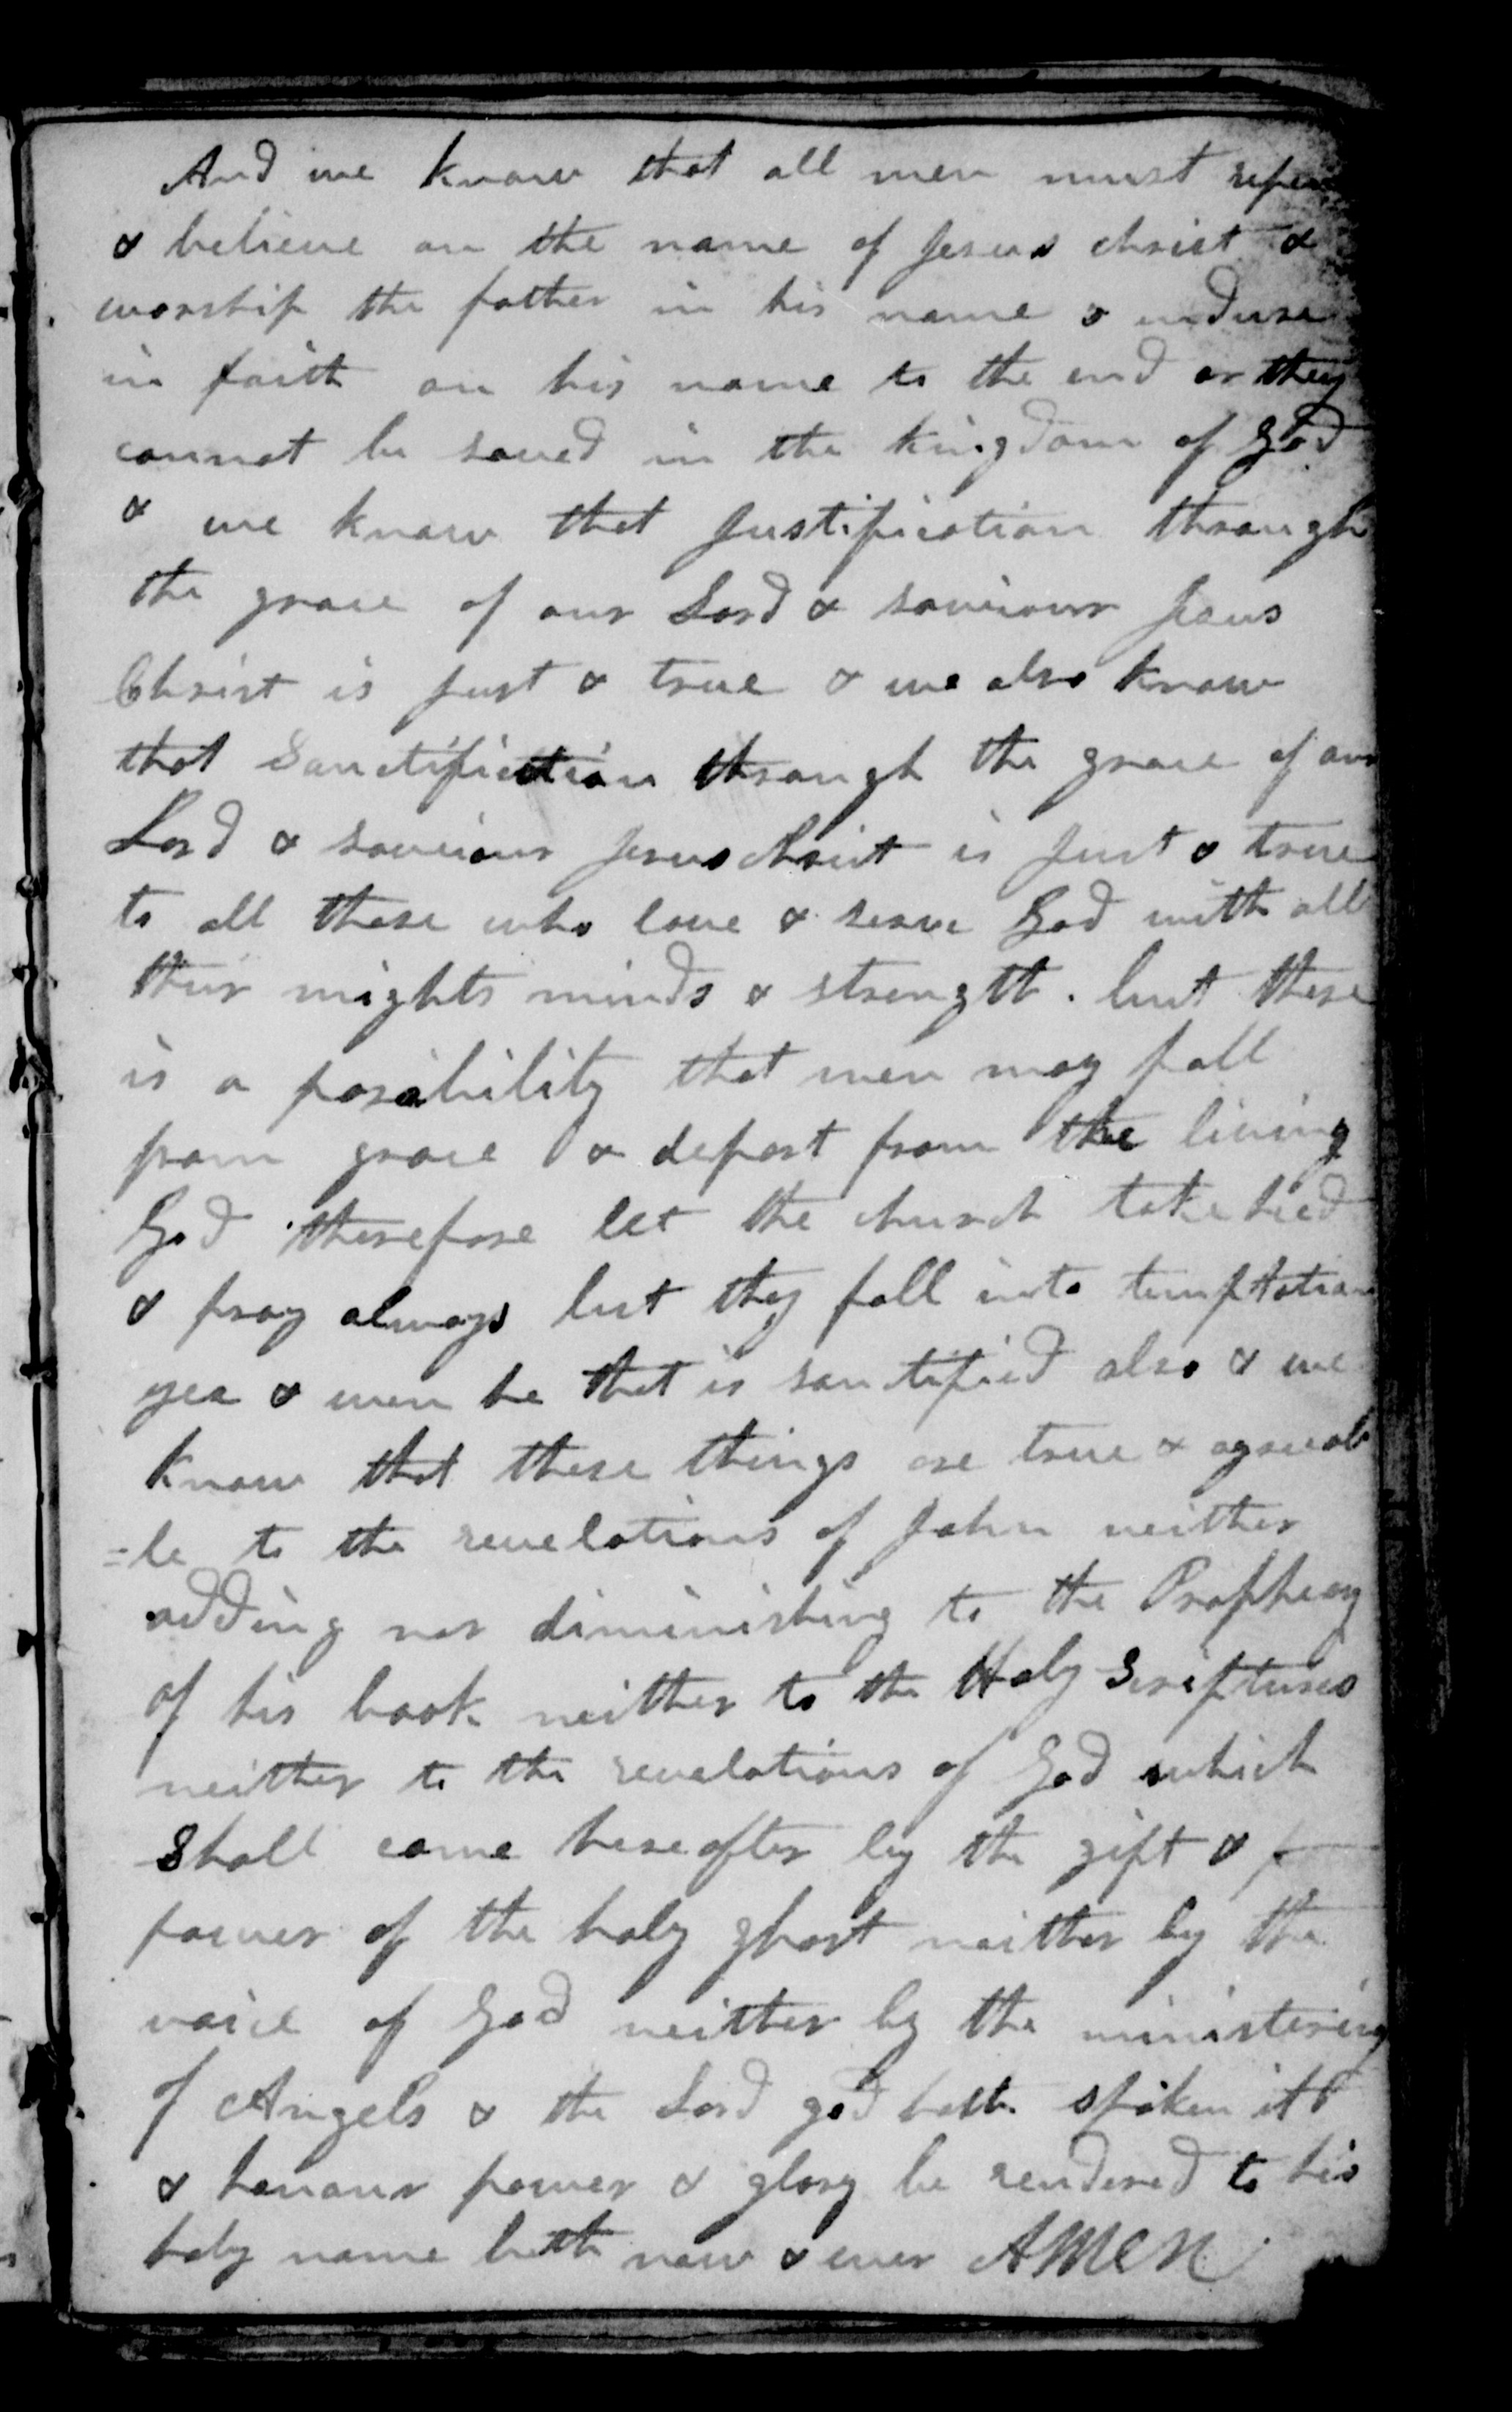 And we know that all men must repen
& believe on the name of Jesus christ &
worship the father in his name & endure
in faith on his name to the end or they
cannot be saved in the kingdom of God
& we know that Justification through
the grace of our Lord & saviour Jesus
Christ is just & true & we also know
that Sanctification through the grace of our
Lord & saviour Jesus christ is Just & true
to all those who love & serve God with all
their mights minds & strength. but there
is a posibility that men may fall
from grace & depart from the living
God therefore let the church take heed
& pray always lest they fall into temptation
yea & even he that is sanctified also & we
know that these things are true & agreeab
=le to the revelations of John neither
adding nor diminishing to the Prophecy
of his book neither to the Holy Scriptures
neither to the revelations of God which
Shall come hereafter by the gift & p
power of the holy ghost neither by the
voice of God neither by the ministering
of Angels & the Lord god hath spoken it
& honour power & glory be rendered to his
holy name both now & ever AMEN